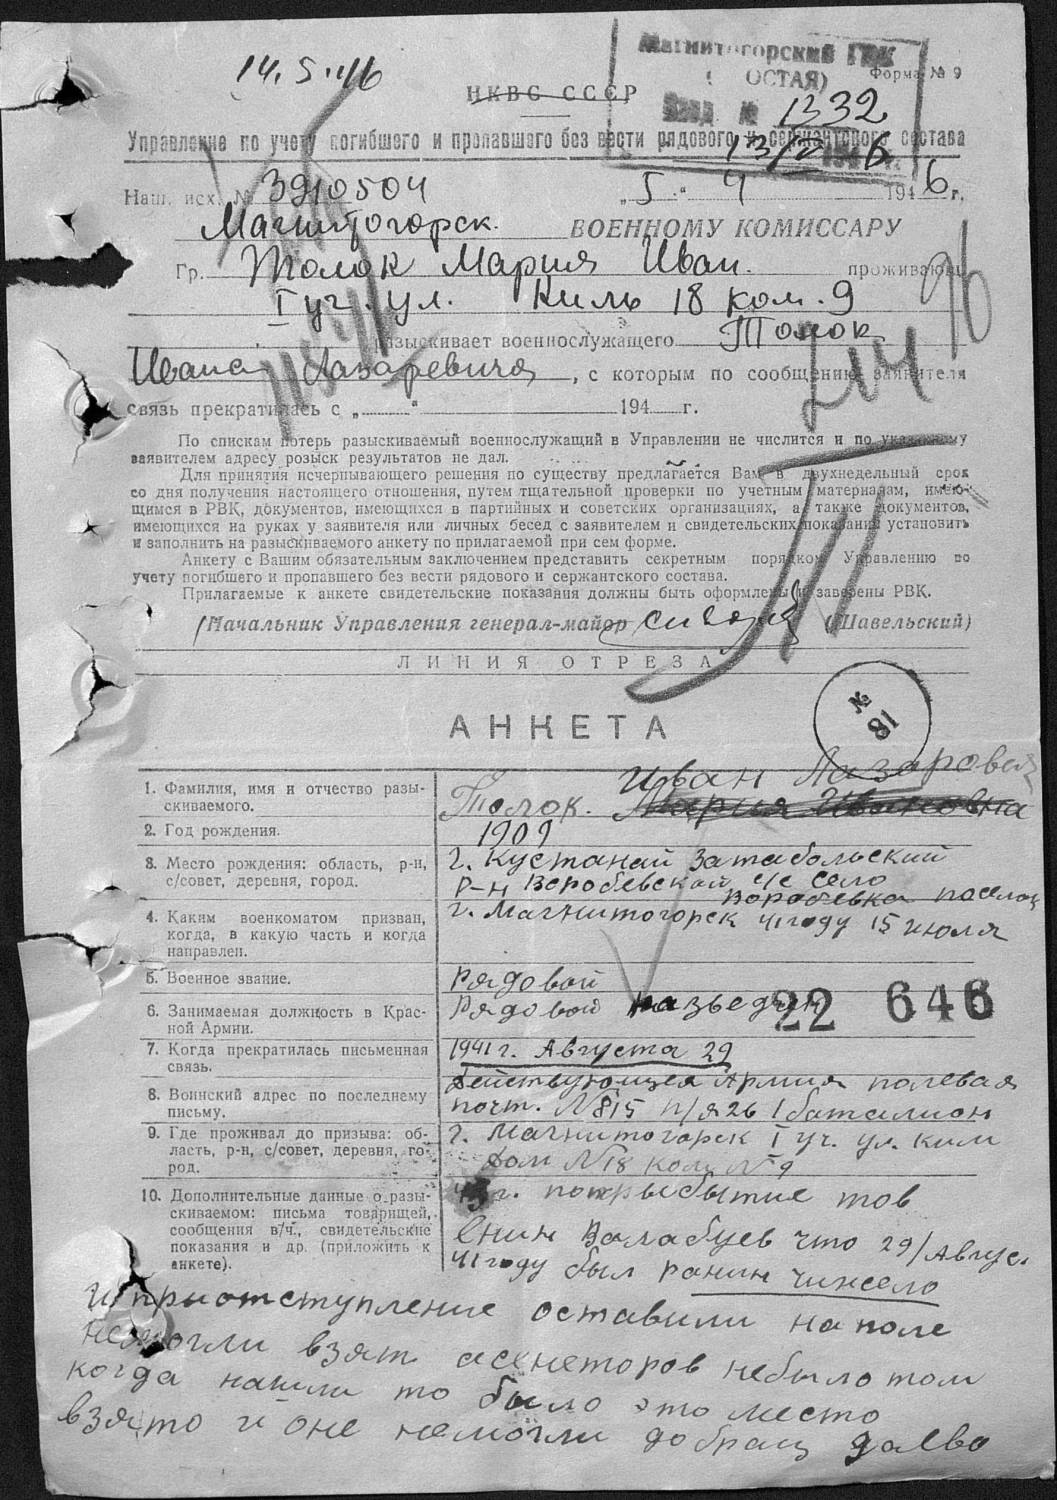 14.5.46
Магнитогорский ГВК
ОСТАЯ)
Форма № 9
НКВС СССР
Вход № 1332
Управление по учету погибшего и пропавшего без вести рядового и сержантского состава
13/V 1946 г.
Наш. исх. № 3910504 „5“ 4 1946 г.
Магнитогорск. ВОЕННОМУ КОМИССАРУ
Гр. Толок Мария Иван. проживающ
I уч. ул. Киль 18 ком. 9
разыскивает военнослужащего Толок
Ивана Лазаревича, с которым по сообщению заявителя
связь прекратилась с „ “ 194 г.
96
По спискам потерь разыскиваемый военнослужащий в Управлении не числится и по указанному
заявителем адресу розыск результатов не дал.
Для принятия исчерпывающего решения по существу предлагается Вам в двухнедельный срок
со дня получения настоящего отношения, путем тщательной проверки по учетным материалам, имею-
щимся в РВК, документов, имеющихся в партийных и советских организациях, а также документов,
имеющихся на руках у заявителя или личных бесед с заявителем и свидетельских показаний установить
и заполнить на разыскиваемого анкету по прилагаемой при сем форме.
Анкету с Вашим обязательным заключением представить секретным порядком Управлению по
учету погибшего и пропавшего без вести рядового и сержантского состава.
Прилагаемые к анкете свидетельские показания должны быть оформлены и заверены РВК.
Начальник Управления генерал-майор (Шавельский)
ЛИНИЯ ОТРЕЗА
№ 81
АНКЕТА
1. Фамилия, имя и отчество разы-
скиваемого.
Иван Лазарович
Толок. Мария Ивановна
2. Год рождения.
1909
3. Место рождения: область, р-н,
с/совет, деревня, город.
г. Кустанай Затабольский
р-н Воробевской с/с село
Воробевка поселок
4. Каким военкоматом призван,
когда, в какую часть и когда
направлен.
г. Магнитогорск 41 году 15 июля
5. Военное звание.
Рядовой
6. Занимаемая должность в Крас-
ной Армии.
Рядовой разведчик
22 646
7. Когда прекратилась письменная
связь.
1941 г. Августа 29
8. Воинский адрес по последнему
письму.
Действующея Армия полевая
почт. N 815 п/я 26 1 баталион
9. Где проживал до призыва: об-
ласть, р-н, с/совет, деревня, го-
род.
г. Магнитогорск I уч. ул. Ким
дом N 18 ком N 9
10. Дополнительные данные о разы-
скиваемом: письма товарищей,
сообщения в/ч., свидетельские
показания и др. (приложить к
анкете).
г. тов
Валабуев что 29/Авгус.
41 году был ранин
и приотступление оставили на поле
немогли взят небыло там
когда нашли то было это место
взято и оне немогли